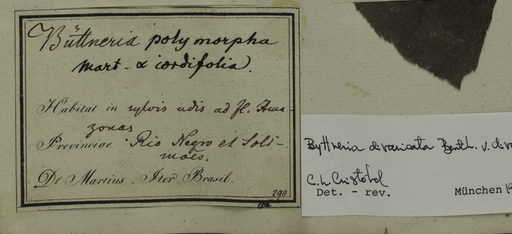 Büttneria polymorpha
Mart. α cordifolia.
Habitat in sylvis udis ad fl. Ama-
zonas
Provinciae Rio Negro et Soli-
mões.
Dr. Martius. Iter Brasil.
290
Byttneria divaricata Benth. v. diva
C. L. Cristobal
Det. - rev.
München